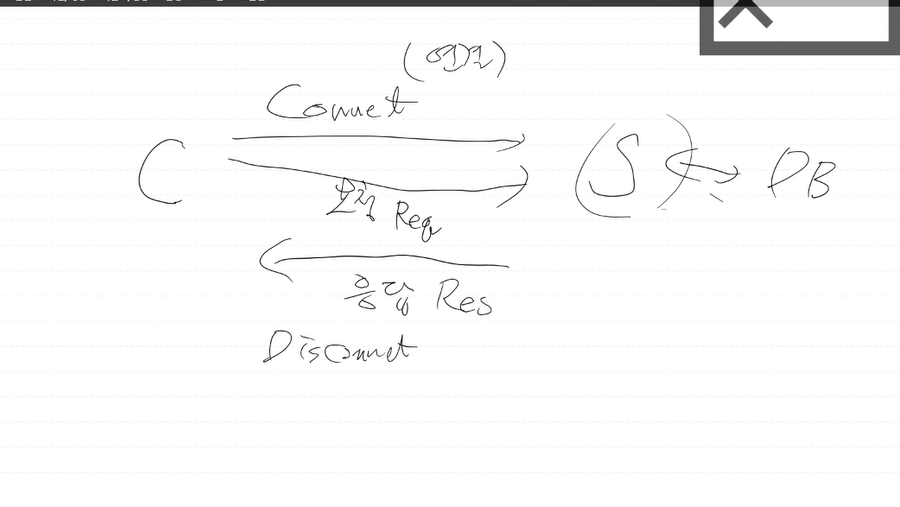 Connet
C
(S)
DB
요청 Req
응답 Res
Disconnet